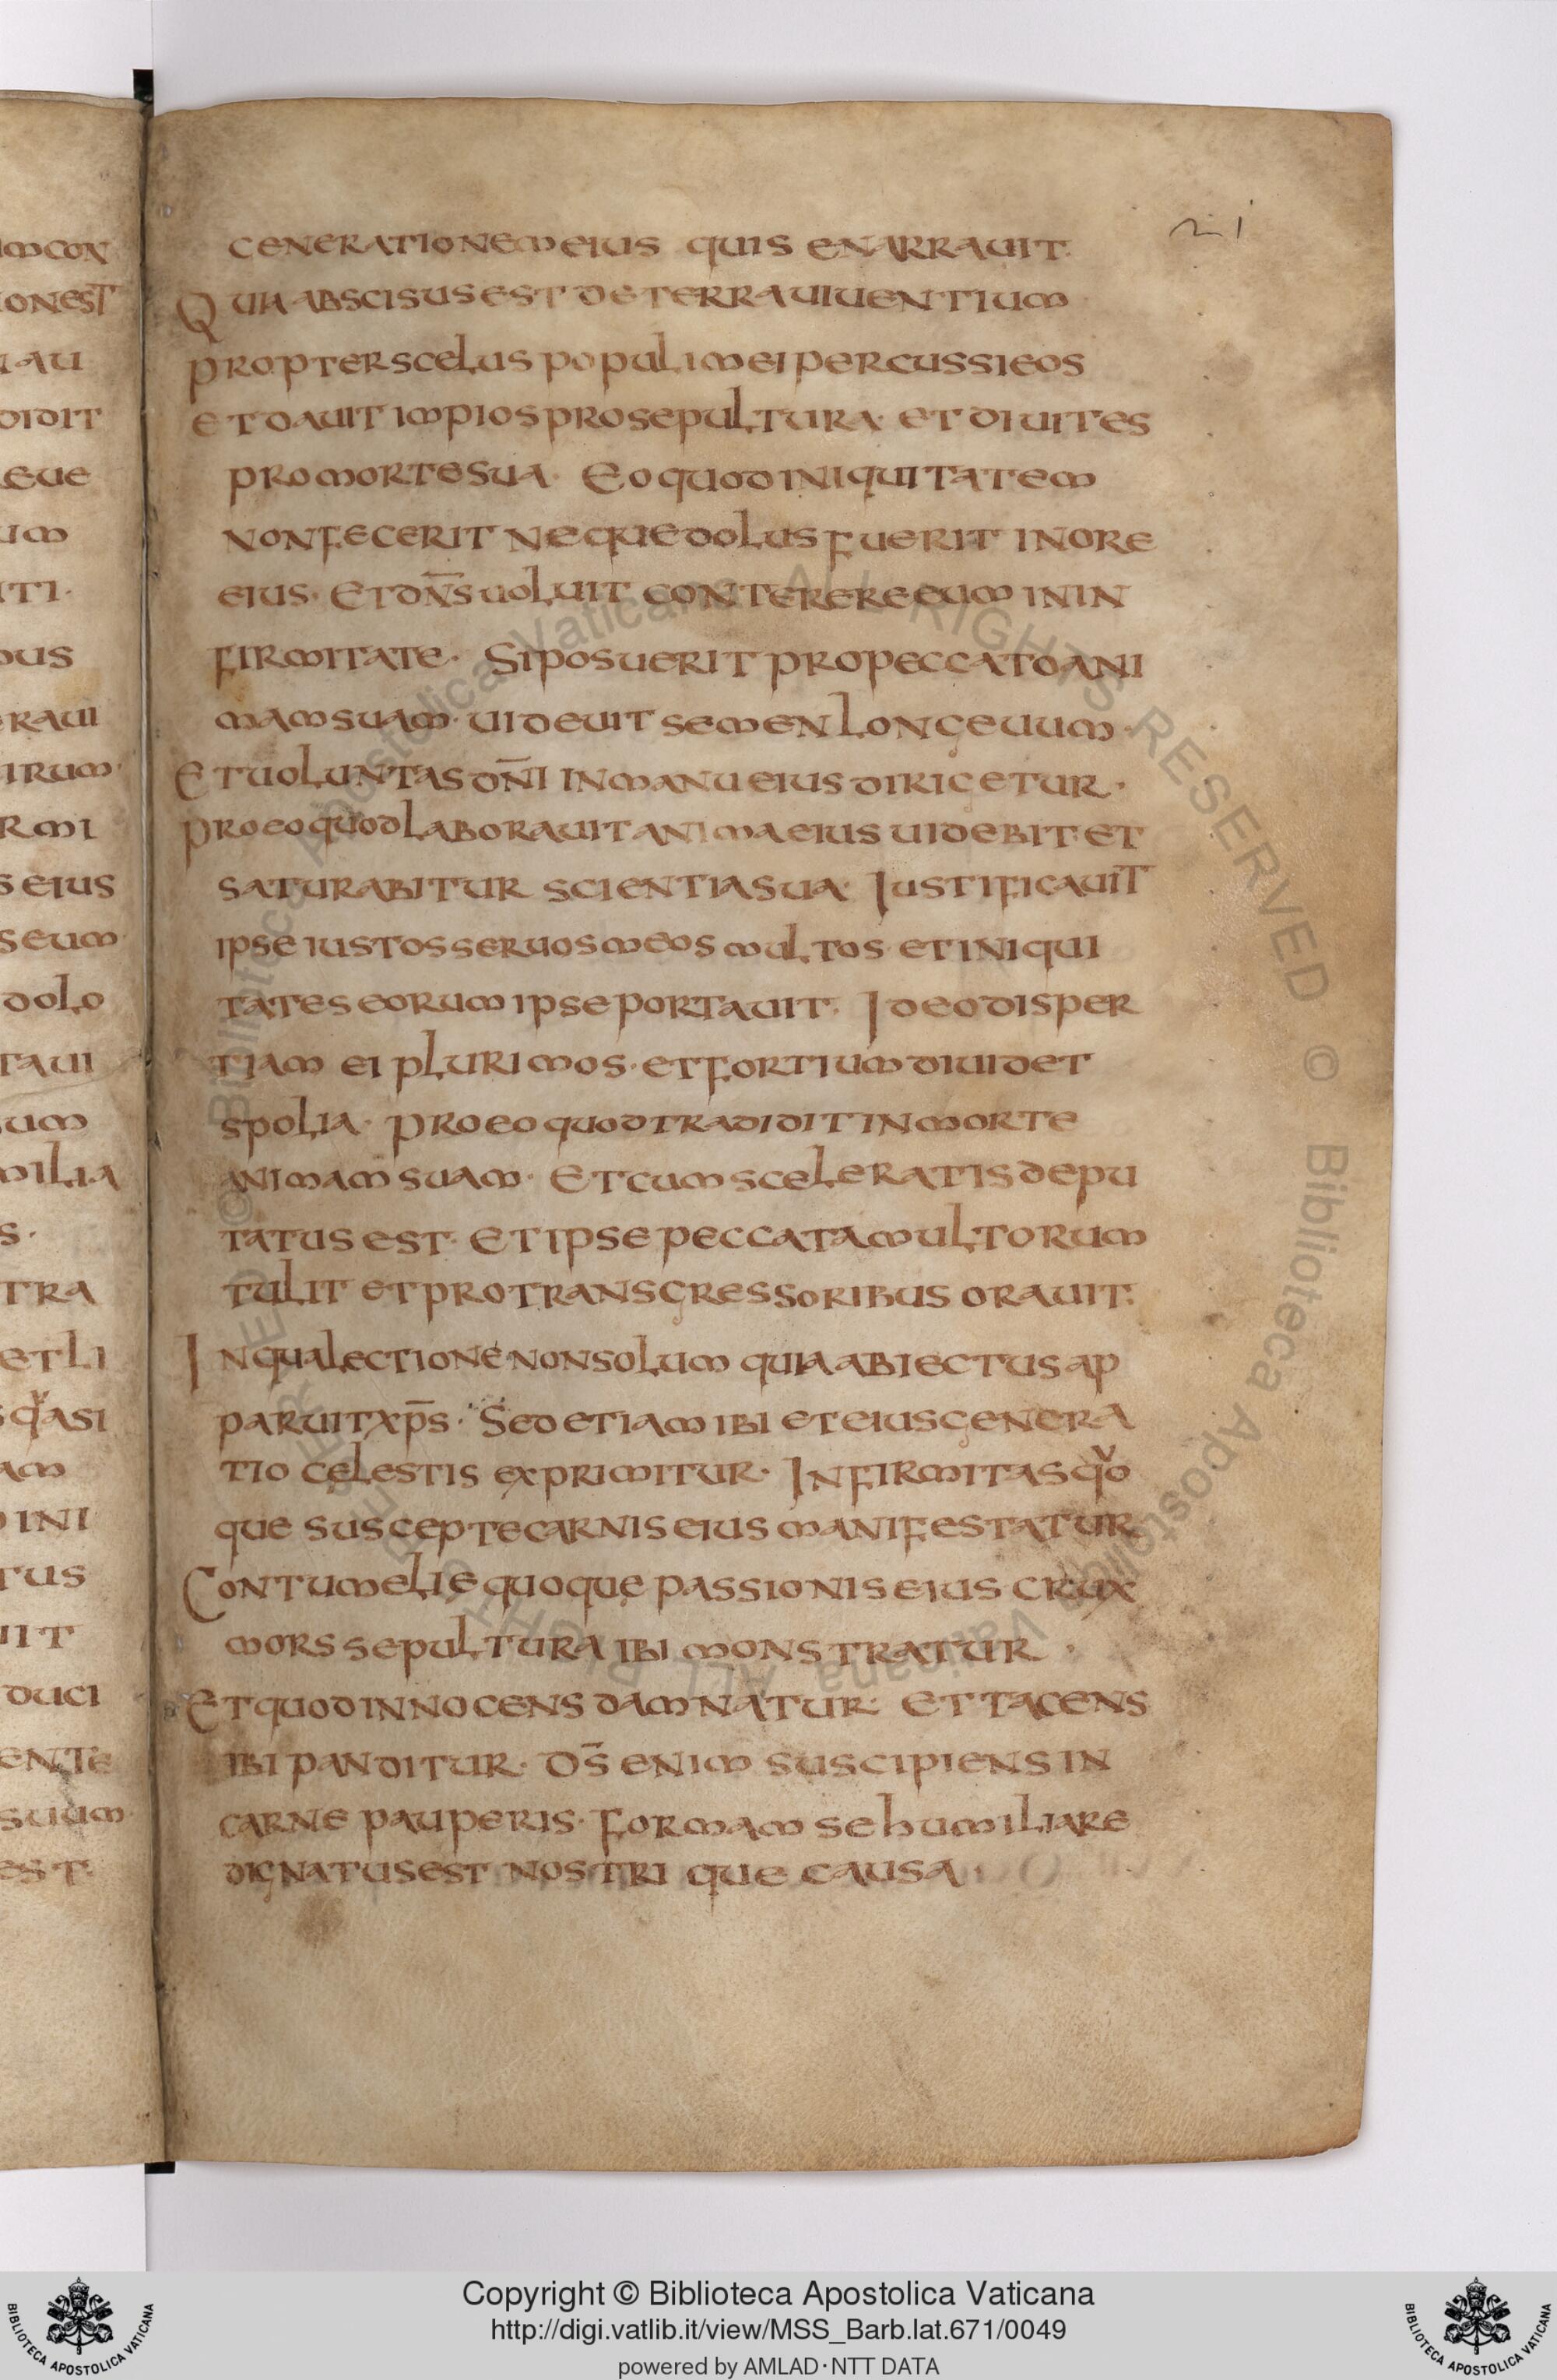 21
GENERATIONEM EIUS QUIS ENARRAUIT.
QUIA ABSCISUS EST DE TERRA UIUENTIUM
PROPTER SCELUS POPULI MEI PERCUSSI EOS
ET DAUIT IMPIOS PRO SEPULTURA· ET DIUITES
PRO MORTE SUA· EO QUOD INIQUITATEM
NON FECERIT NEQUE DOLUS FUERIT IN ORE
EIUS· ET DN̄S UOLUIT CONTERERE EUM IN IN
FIRMITATE· SI POSUERIT PRO PECCATO ANI
MAM SUAM· UIDEUIT SEMEN LONGEUUM·
ET UOLUNTAS DN̄I IN MANU EIUS DIRIGETUR·
PRO EO QUOD LABORAUIT ANIMA EIUS UIDEBIT ET
SATURABITUR SCIENTIA SUA· IUSTIFICAUIT
IPSE IUSTOS SERUOS MEOS MULTOS· ET INIQUI
TATES EORUM IPSE PORTAUIT. IDEO DISPER
TIAM EI PLURIMOS· ET FORTIUM DIUIDET
SPOLIA· PRO EO QUOD TRADIDIT IN MORTE
ANIMAM SUAM· ET CUM SCELERATIS DEPU
TATUS EST· ET IPSE PECCATA MULTORUM
TULIT ET PRO TRANSGRESSORIBUS ORAUIT.
IN QUA LECTIONE NON SOLUM QUIA ABIECTUS AP
PARUIT XP̄S· SED ETIAM IBI ET EIUS GENERA
TIO CELESTIS EXPRIMITUR· INFIRMITAS QͮO
QUE SUSCEPTE CARNIS EIUS MANIFESTATUR
CONTUMELIE QUOQUE PASSIONIS EIUS CRUX
MORS SEPULTURA IBI MONSTRATUR·
ET QUOD INNOCENS DAMNATUR· ET TACENS
IBI PANDITUR· DS̄ ENIM SUSCIPIENS IN
CARNE PAUPERIS· FORMAM SE HUMILIARE
DIGNATUS EST NOSTRI QUE CAUSA
Copyright © Biblioteca Apostolica Vaticana
http://digi.vatlib.it/view/MSS_Barb.lat.671/0049
powered by AMLAD·NTT DATA
BIBLIOTECA APOSTOLICA VATICANA
BIBLIOTECA APOSTOLICA VATICANA